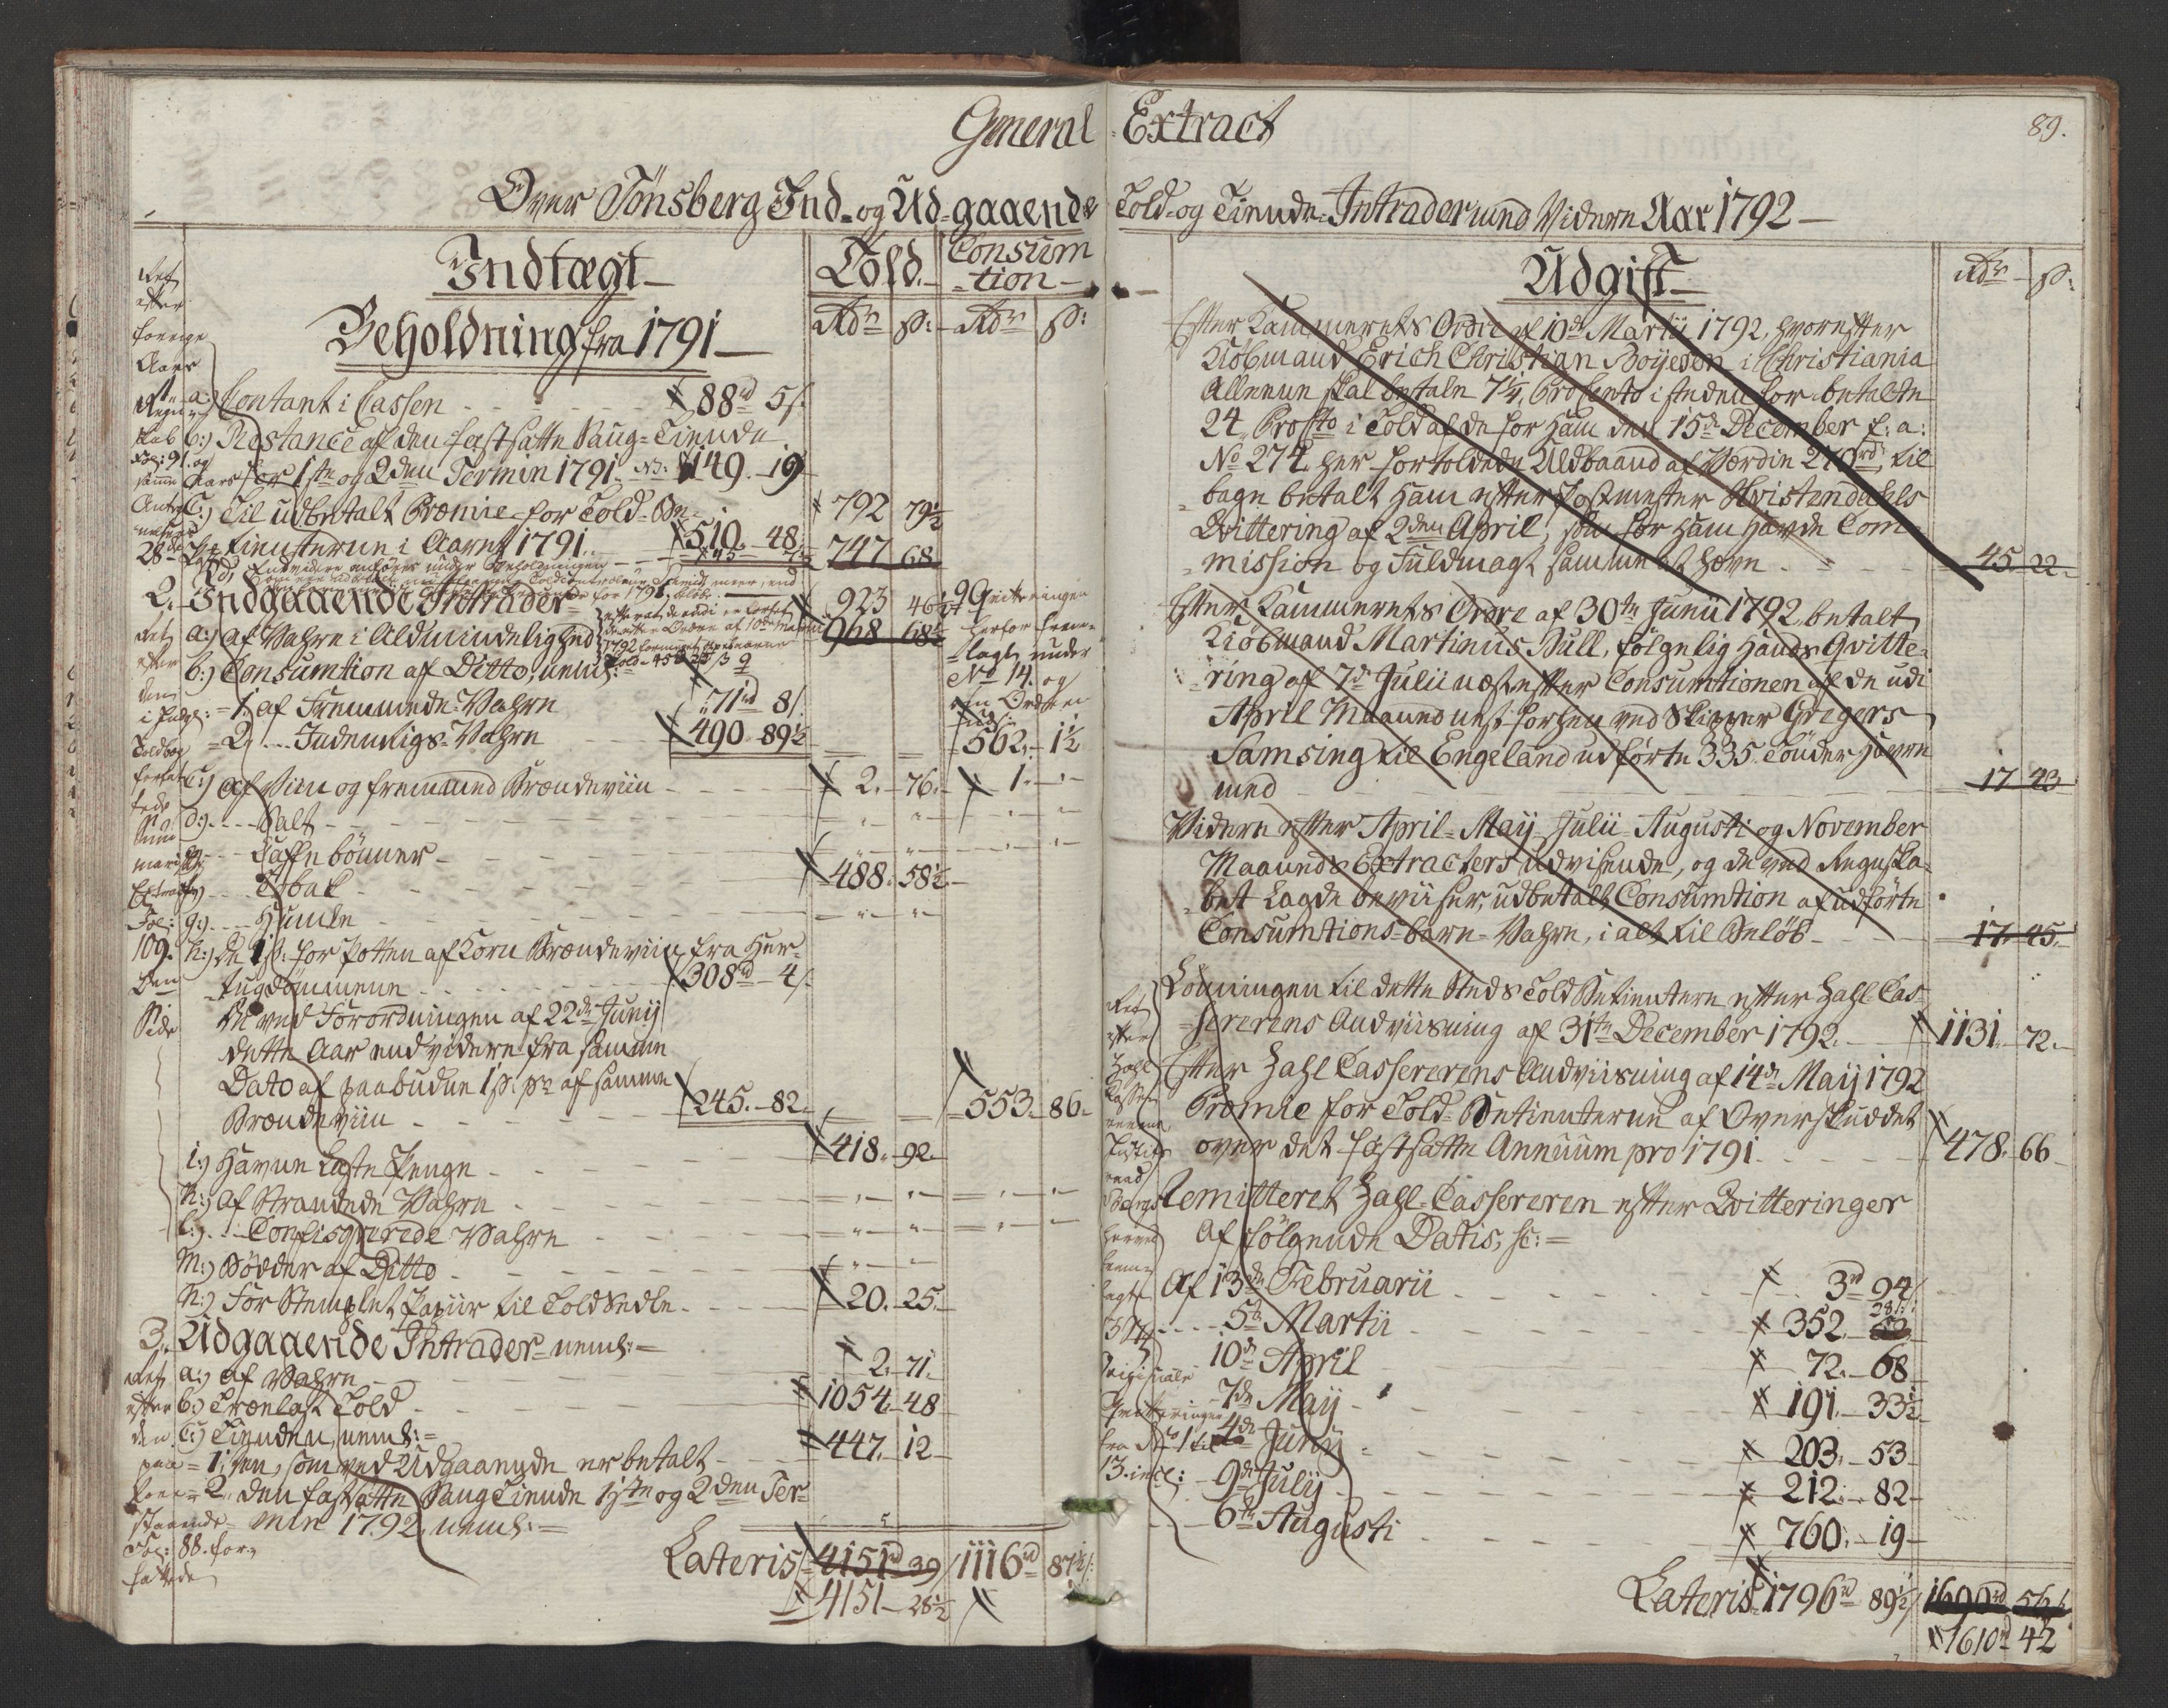 General Extract
89.
Over Tönsberg Ind- og Ud-gaaende Told- og Tiende-Intrader und Videre Aar 1792
Indtægt
Told. Consumtion
Rdr ß: Rdr ß:
Beholdning fra 1791
Ret
efter
forrige
Aars
a:) Contant i Cassen 88rd 5ß
b:) Restance af den fastsatte Saug-Tiende
for 1ste og 2den Termin 1791. 149. 19
c:) Til udbetalt Præmie for Told-Be- 792 79½
tienterne i Aaret 1791. 510. 48. 747 68.
2. Indgaaende Intrader 923 46½
a:) af Vahre i Aldmindelighed 968 68½
1792
Qvitteringen
herfor frem-
lagt under
No 14. og
b:) Consumtion af Ditto, neml:
1. af Fremmede Vahre 71rd 8ß
2. Indenrigs-Vahre 490 89½ 562. 1½
c:) af Viin og fremmed Brændeviin 2. 76. 1.
d:) Salt
Caffebönner
Tobak 488. 58½
g:) Humle
h:) De 1ß: for Potten af Korn Brændeviin fra Her-
tugdömmene 308rd 4ß
ved Forordningen af 22de Junij
dette Aar endvidere fra samme
Dato af paabudne 1ß. pr af samme
Brændeviin 245. 82. 553. 86.
i:) Havne Laste Penge 418. 92.
k:) af Strandede Vahre
l:) Confisqverede Vahre
m:) Bödder af Ditto
n:) For Stemplet Papiir til Toldsedle 20. 25.
3. Udgaaende Intrader neml:
a:) af Vahre 2. 71.
b:) Trælast Told 1054. 48
c:) Tienden, neml:
1. den, som ved Udgaaende er betalt 447. 12
2. den fastsatte Saug Tiende 1ste og 2den Ter-
min 1792, neml:
Fol: 88. for-
fattede
Lateris 4151rd 39 1116rd 87½
4151 28½
Udgift
Rdr ß:
Efter Kammerets Ordre af 10de Martii 1792, hvorefter
Kiöbmand Erich Christian Boyesen i Christiania
Alleene skal betale 7¼ ProCento isteden for betalte
24 ProCto i Told af de for ham den 15de December f: a:
No 274. her fortoldede Uldbaand af Værdie 270rd, til
bage betalt ham efter Postmester
Qvittering af 2den April, som for ham havde Com-
mission og Fuldmagt samme at hæve 45. 22.
Efter Kammerets Ordre af 30te Junii 1792 betalt
Kiöbmand Martinus Bull, fölgelig hands Qvitte-
ring af 7de Julii næstefter Consumtionen af de udi
April Maaned næst forhen ved Skipper Gregers
Samsing til Engeland udförte 335 Tönder Havre
med 17. 43
Videre efter April- May- Julii- Augusti og November
Maaneds Extracters udvisende, og de ved Regnska-
bet Lagde beviiser, udbetalt Consumtion af udförte
Consumtions-bare-Vahre, i alt til Belöb 17. 45.
Lönningen til dette Steds Told Betientere efter Zahl Cas-
sererens Andviisning af 31te December 1792. 1131. 72.
Efter Zahl Cassererens Andviisning af 14de Maij 1792
Præmie for Told-Betienterne af Overskuddet
over det fastsatte Annuum pro 1791 478. 66
Remitteret Zahl-Cassereren efter Qvitteringer
af fölgende Datis, sc:
Af 13de Februarii 3rd 94ß
5te Martii 352. 28
10de April 72. 68
7de Maij 191. 33½
4de Junij 203. 53
9de Julij 212. 82
6te Augusti 760. 19
Lateris 1796rd 89½ 1690rd 56ß
1610rd 42